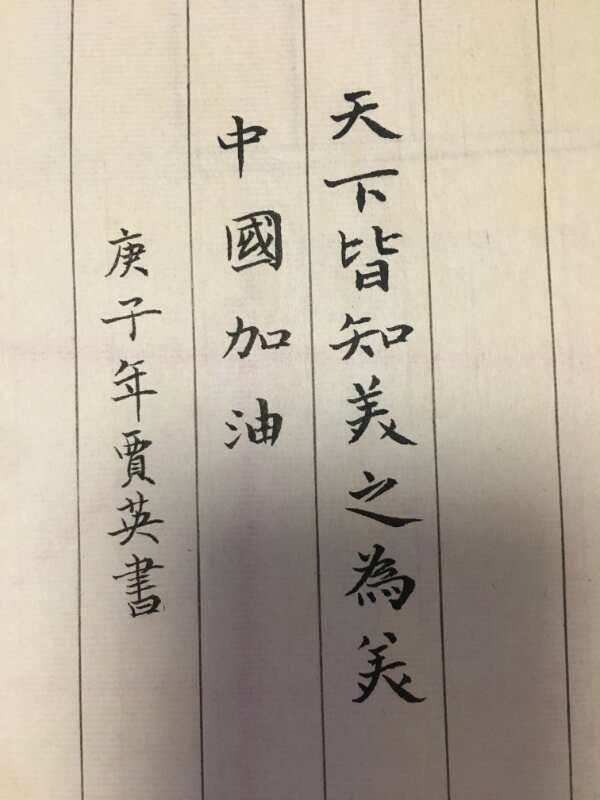 天下皆知美之為美
中國加油
庚子年賈英書